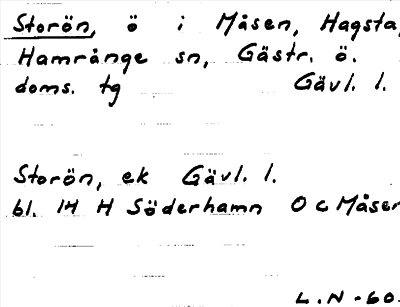 Storön, ö i Måsen, Hagsta,
Hamrånge sn, Gästr. ö.
doms. tg Gävl. l.
Storön, ek Gävl. l.
bl. 14 H Söderhamn O c Måsen
L.N-60.